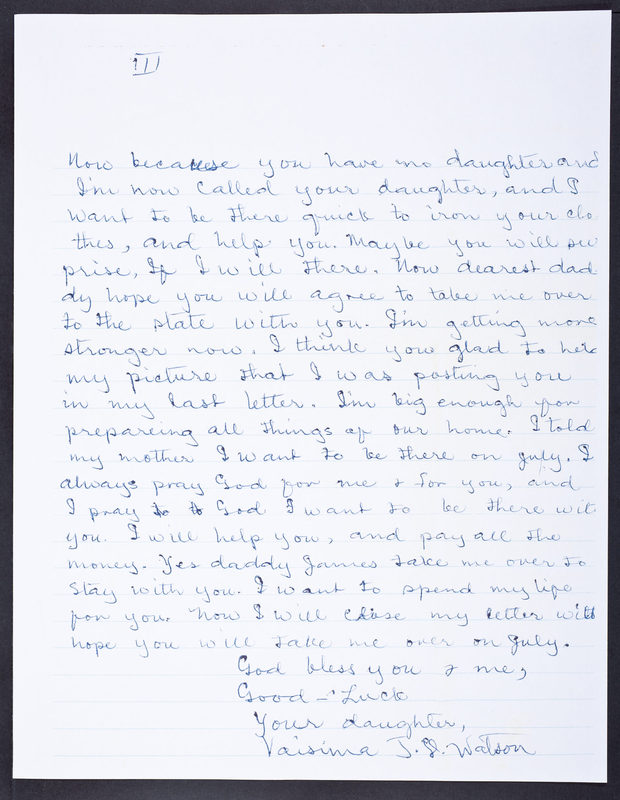 II
Now because you have no daughter and
I'm now called your daughter, and I
want to be there quick to iron your clo
thes, and help you. Maybe you will su
prise, If I will there. Now dearest dad
dy hope you will agree to take me over
to the state with you. I'm getting more
stronger now. I think you glad to
my picture that I was posting you
in my last letter. I'm big enough for
prepareing all things of our home. I told
my mother I want to be there on july. I
always pray God for me & for you, and
I pray to God I want to be there wit
you. I will help you, and pay all the
money. Yes daddy James take me over to
stay with you. I want to spend my life
for you. Now I will close my letter with
hope you will take me over on july.
God bless you & me,
Good - Luck
Your daughter,
Vaisima J. S. Watson